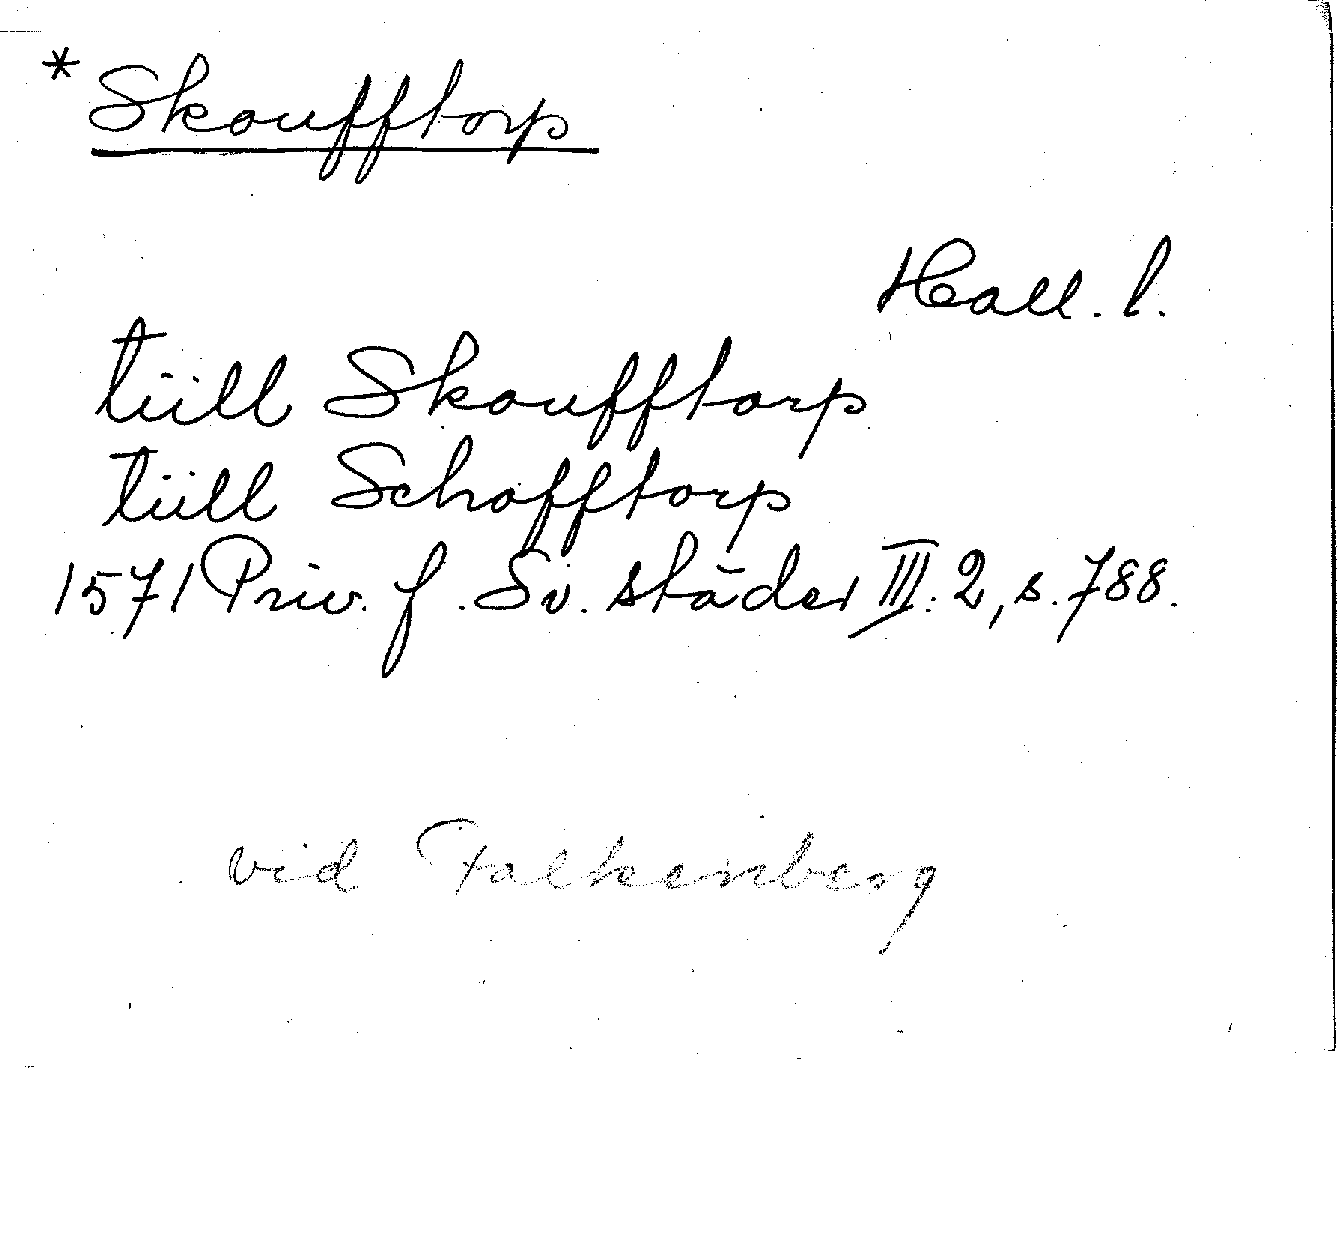 *Skoufftorp
Hall. l.
tiill Skoufftorp
tiill Schofftorp
1571 Priv. f. Sv. städer III:2, s. 788.
vid Falkenberg